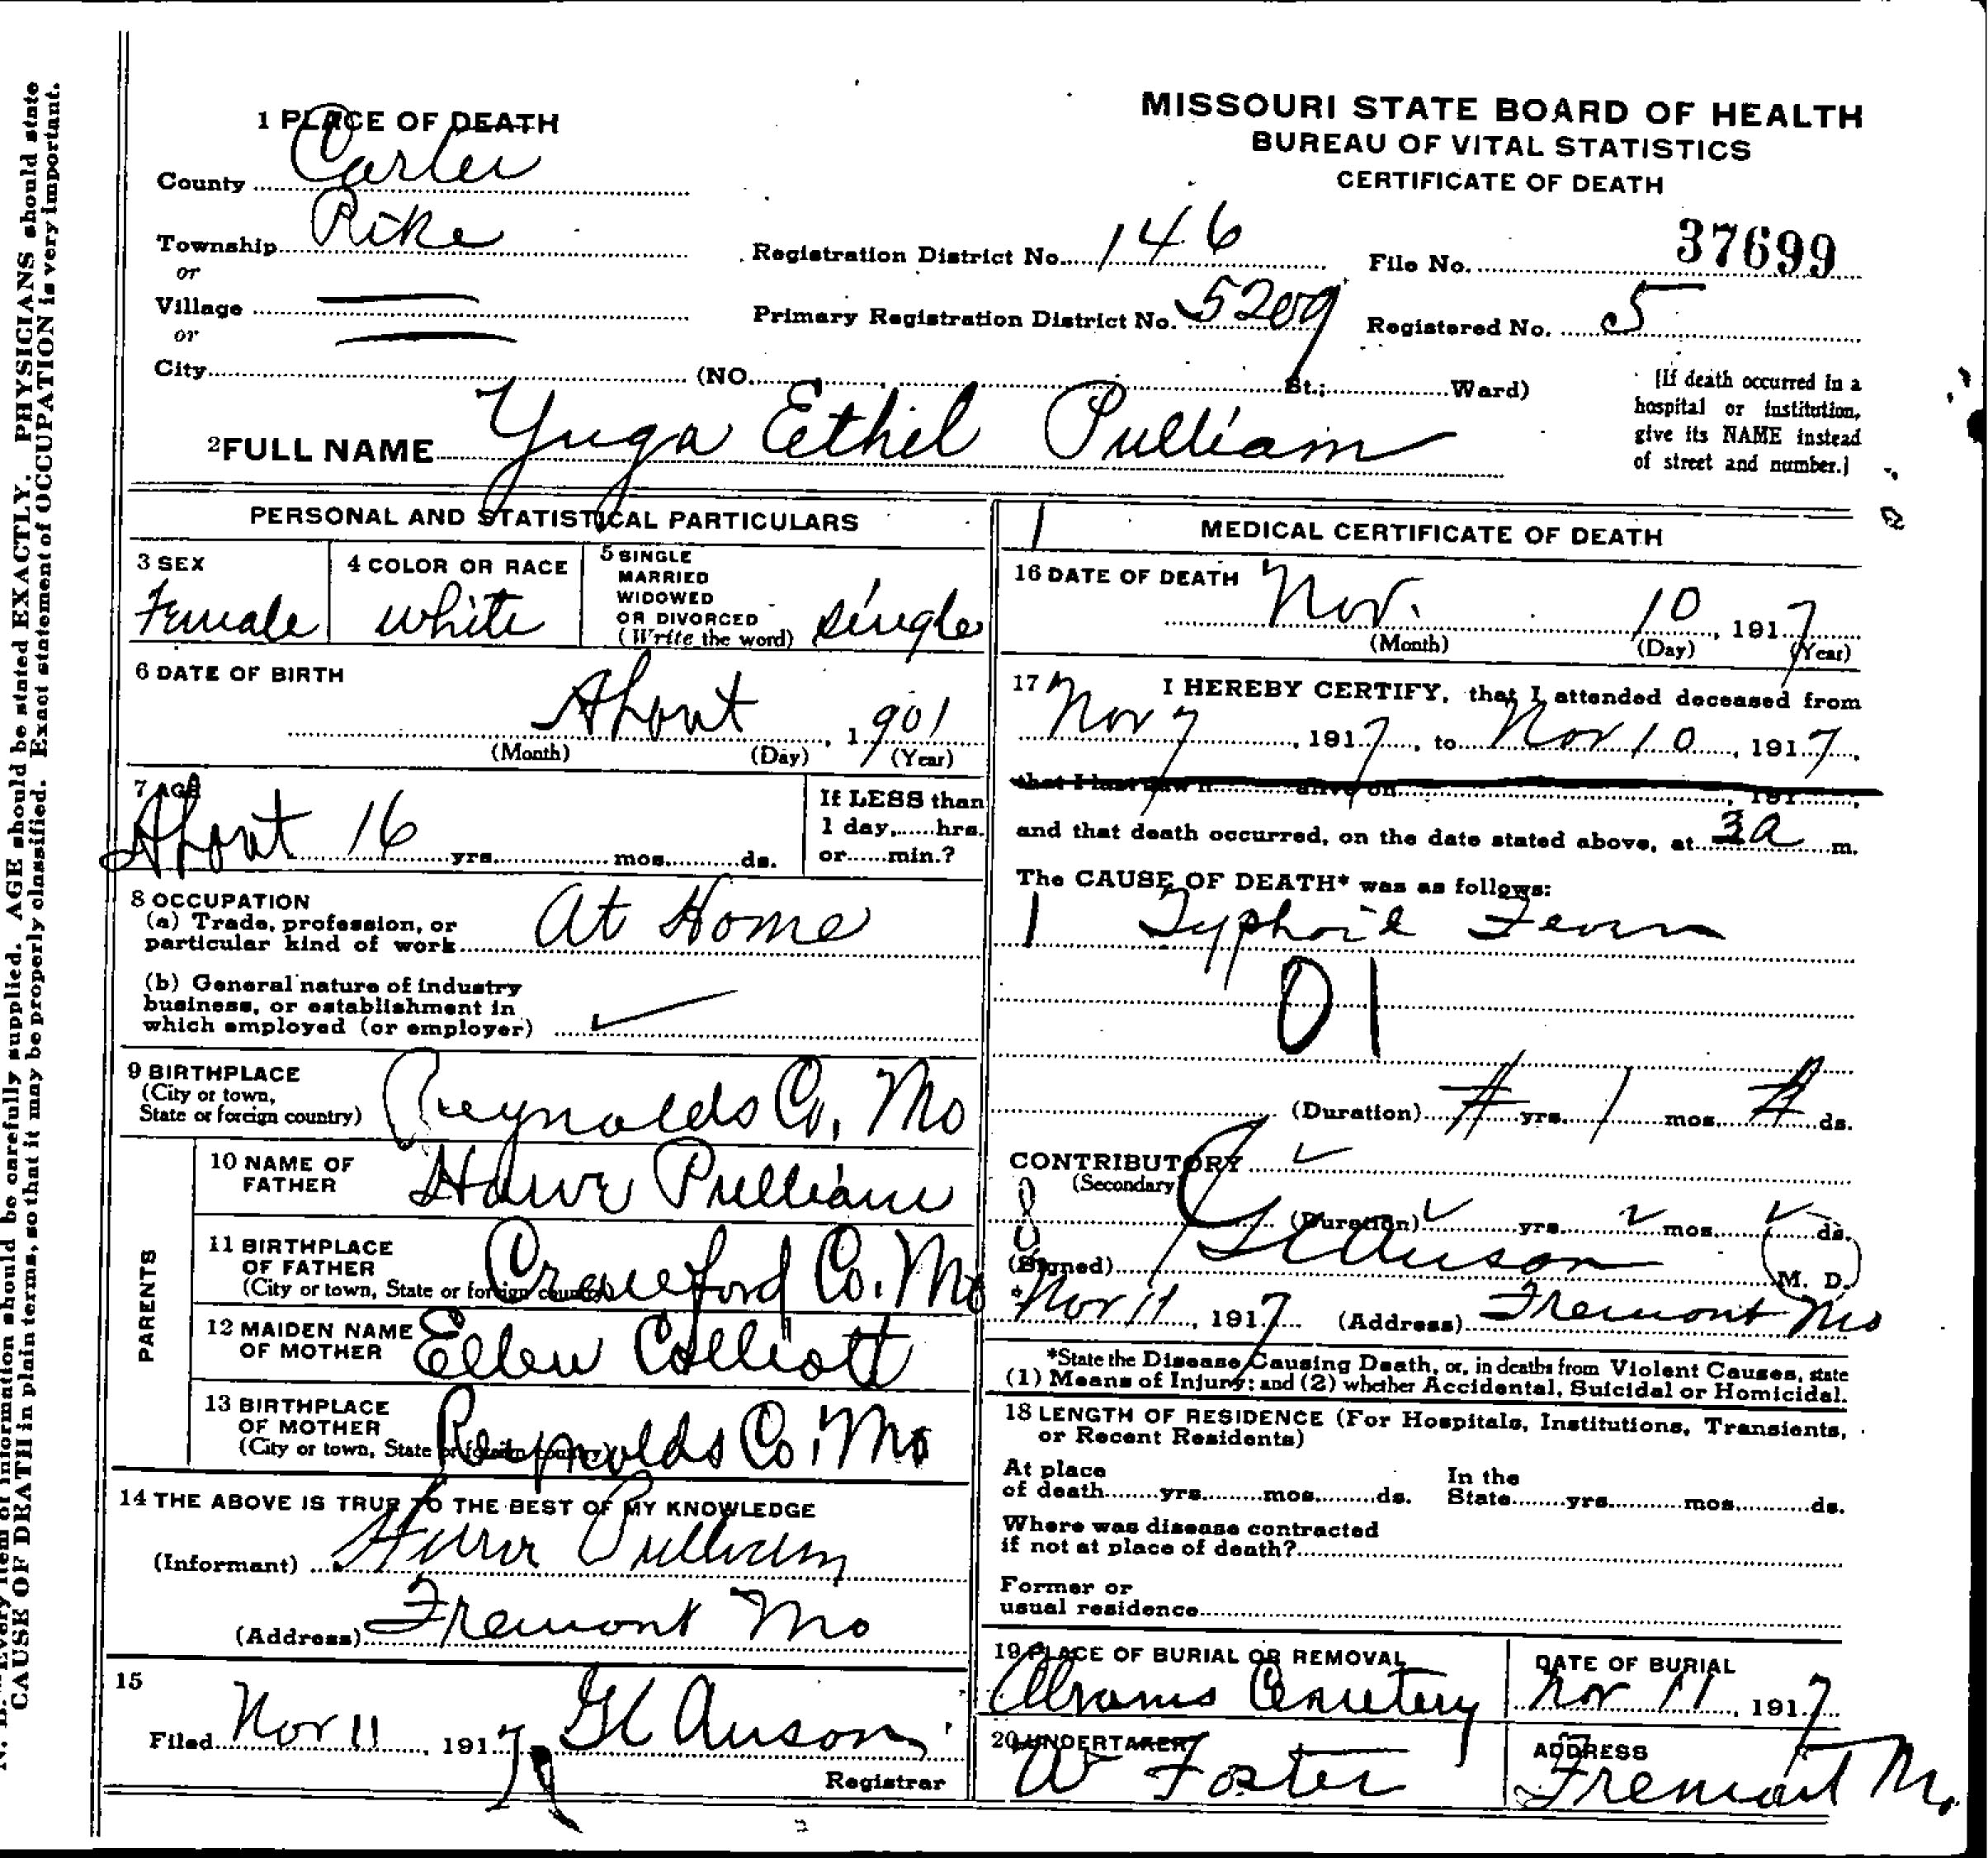 MISSOURI STATE BOARD OF HEALTH
BUREAU OF VITAL STATISTICS
CERTIFICATE OF DEATH
1 PLACE OF DEATH
County Carter
Township Pike
or
Village
or
City (NO. St.; Ward)
Registration District No. 146
File No. 37699
Primary Registration District No. 5209
Registered No. 5
[If death occurred in a
hospital or institution,
give its NAME instead
of street and number.]
2 FULL NAME Yuga Ethel Pulliam
PERSONAL AND STATISTICAL PARTICULARS
3 SEX
Female
4 COLOR OR RACE
White
5 SINGLE
MARRIED
WIDOWED
OR DIVORCED
(Write the word) single
6 DATE OF BIRTH
About , 1901
(Month) (Day) (Year)
7 AGE
About 16 yrs. mos. ds.
If LESS than
1 day, hrs.
or min.?
8 OCCUPATION
(a) Trade, profession, or
particular kind of work At Home
(b) General nature of industry
business, or establishment in
which employed (or employer)
9 BIRTHPLACE
(City or town,
State or foreign country) Reynolds Co, Mo
PARENTS
10 NAME OF
FATHER Pulliam
11 BIRTHPLACE
OF FATHER
(City or town, State or foreign country) Crawford Co. Mo
12 MAIDEN NAME
OF MOTHER Ellen
13 BIRTHPLACE
OF MOTHER
(City or town, State or foreign country) Reynolds Co, Mo
14 THE ABOVE IS TRUE TO THE BEST OF MY KNOWLEDGE
(Informant) Pulliam
(Address) Fremont Mo
15
Filed Nov 11, 1917 Anson
Registrar
1 MEDICAL CERTIFICATE OF DEATH
16 DATE OF DEATH
Nov. 10, 1917
(Month) (Day) (Year)
17 I HEREBY CERTIFY, that I attended deceased from
Nov 7, 1917, to Nov 10, 1917,
that I last saw h alive on , 191 ,
and that death occurred, on the date stated above, at 3 a m.
The CAUSE OF DEATH* was as follows:
1 Typhoid Fever
01
(Duration) yrs. 1 mos. ds.
CONTRIBUTORY
(Secondary)
(Duration) yrs. mos. ds.
(Signed) Anson M. D.
Nov 11, 1917 (Address) Fremont Mo
*State the Disease Causing Death, or, in deaths from Violent Causes, state
(1) Means of Injury; and (2) whether Accidental, Suicidal or Homicidal.
18 LENGTH OF RESIDENCE (For Hospitals, Institutions, Transients,
or Recent Residents)
At place
of death yrs. mos. ds.
In the
State yrs. mos. ds.
Where was disease contracted
if not at place of death?
Former or
usual residence
19 PLACE OF BURIAL OR REMOVAL
Abrams Cemetery
DATE OF BURIAL
Nov 11, 1917
20 UNDERTAKER
W Foster
ADDRESS
Fremont Mo.
Every item of information should be carefully supplied. AGE should be stated EXACTLY. PHYSICIANS should state
CAUSE OF DEATH in plain terms, so that it may be properly classified. Exact statement of OCCUPATION is very important.